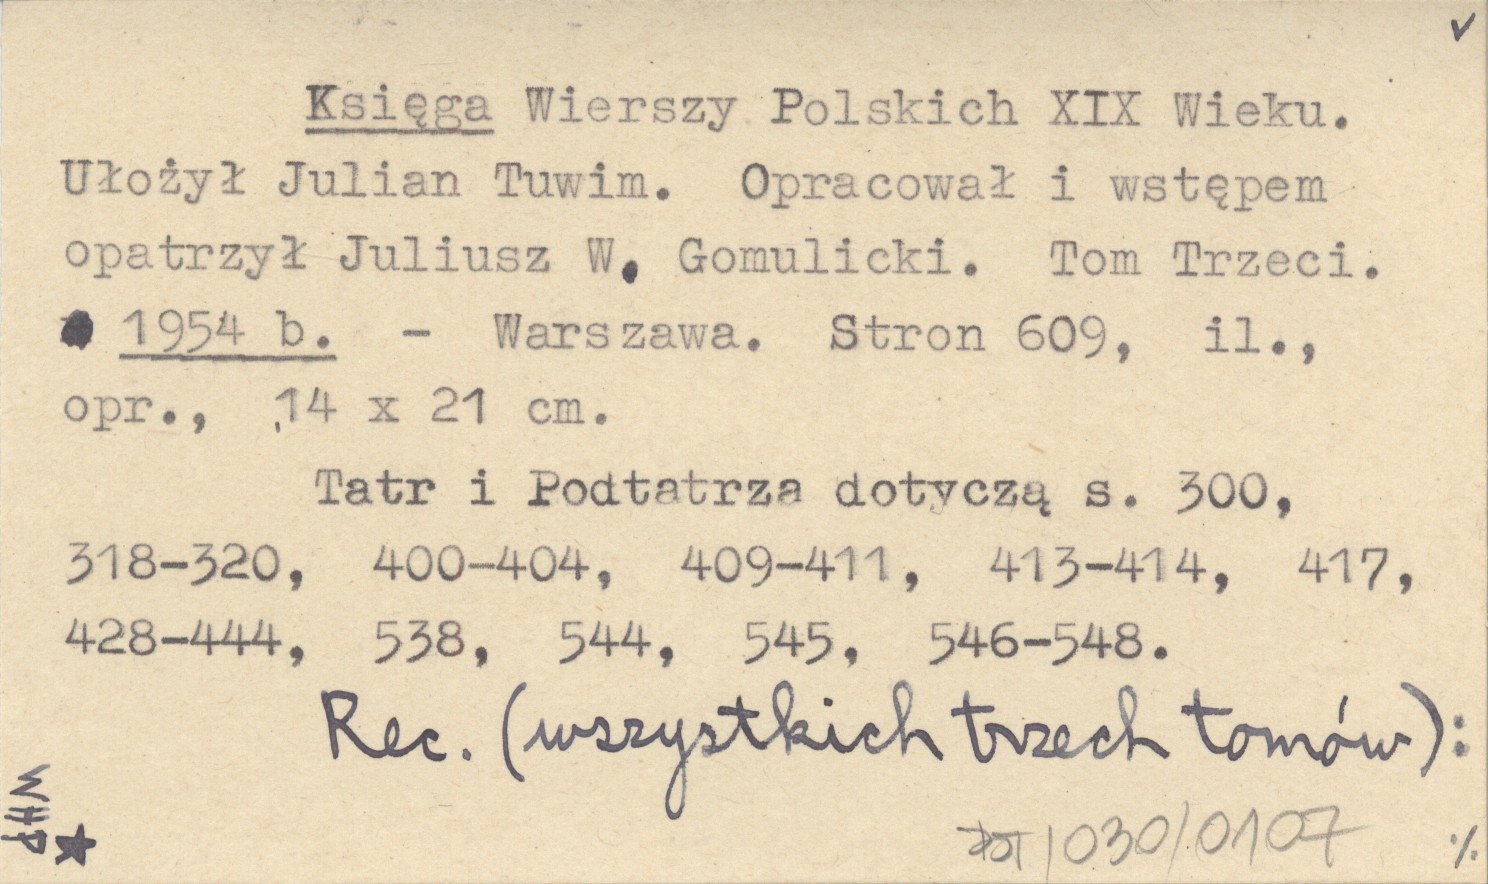 Księga Wierszy Polskich XIX Wieku.
Ułożył Julian Tuwim. Opracował i wstępem
opatrzył Juliusz W. Gomulicki. Tom Trzeci.
1954 b. - Warszawa. Stron 609, il.,
opr., 14 x 21 cm.
Tatr i Podtatrza dotyczą s. 300,
318-320, 400-404, 409-411, 413-414, 417,
428-444, 538, 544, 545, 546-548.
Rec. (wszystkich trzech tomów):
030/0107
./.